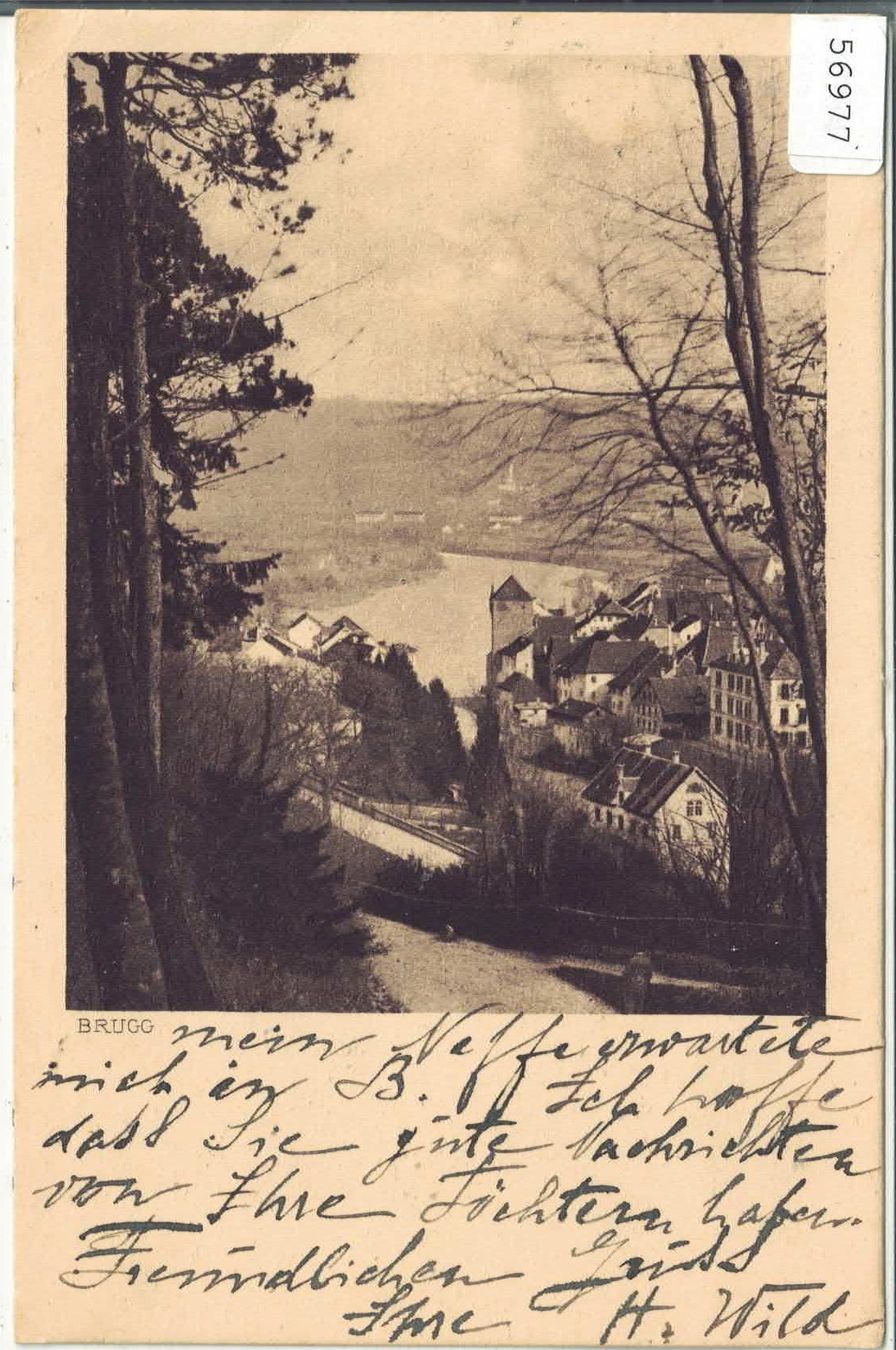 56977
BRUGG
mein Neffe erwartete
mich in B. Ich hoffe
dass Sie gute Nachrichten
von Ihre Töchtern haben.
Freundlichen Gruss
Ihre H. Wild